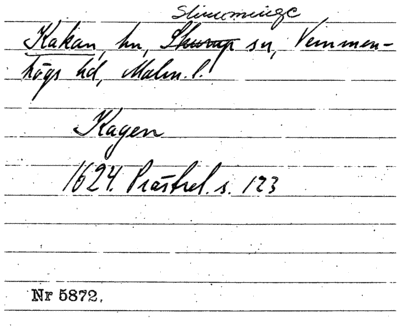 Slimminge
Kakan, hn, Skurup sn, Vemmen-
högs hd, Malm. l.
Kagen
1624. Prästrel. s. 123
Nr 5872.